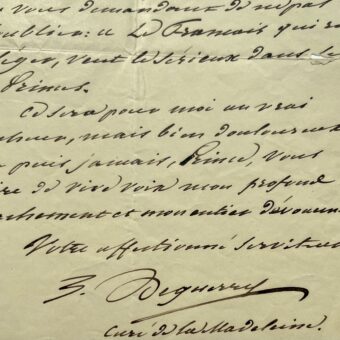 vous demandant de ne pas
oublier : « Le Français qui
léger, veut le sérieux dans le
Princes.
Ce sera pour moi un vrai
mais bien douloureux
puis jamais, Prince, vous
de vive voix mon profond
et mon entier dévoueme
Votre affectionné serviteur
Deguerry
curé de la Madeleine.